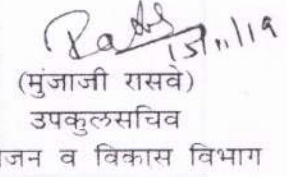 15/11/19
(मुंजाजी रासवे)
उपकुलसचिव
जन व विकास विभाग